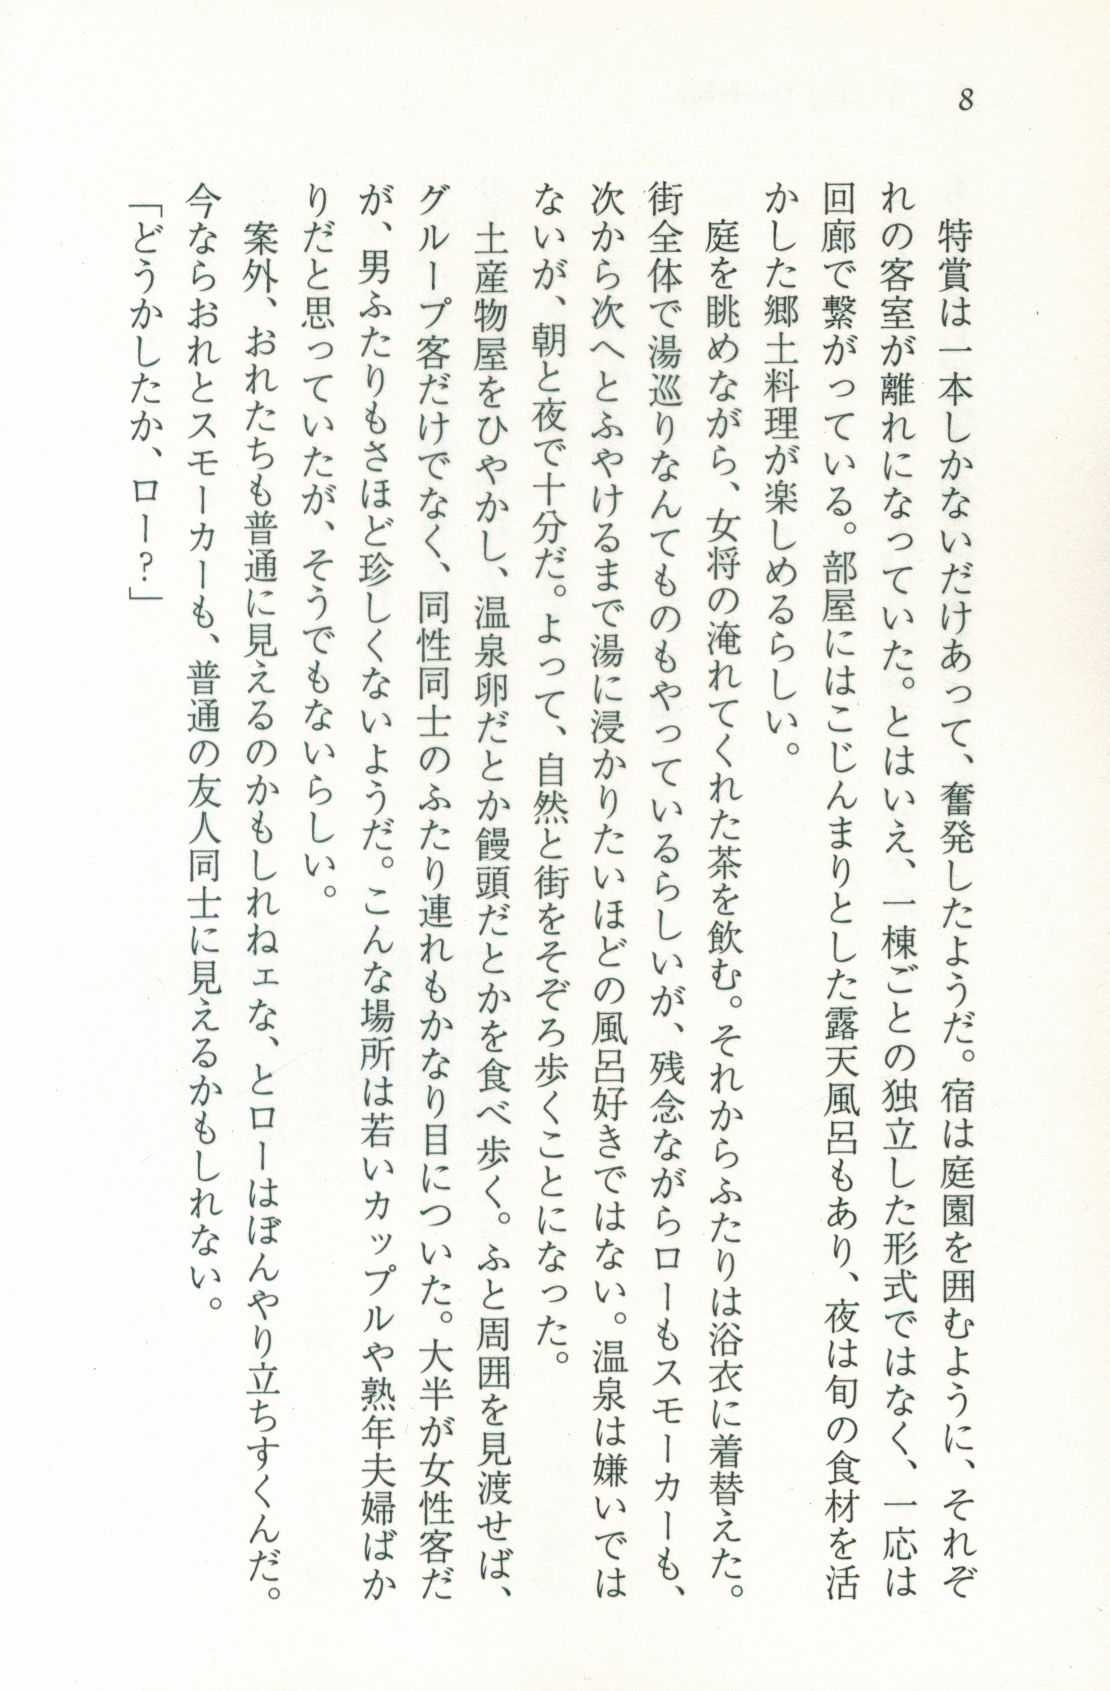 8
特賞は一本しかないだけあって、奮発したようだ。宿は庭園を囲むように、それぞ
れの客室が離れになっていた。とはいえ、一棟ごとの独立した形式ではなく、一応は
回廊で繋がっている。部屋にはこじんまりとした露天風呂もあり、夜は旬の食材を活
かした郷土料理が楽しめるらしい。
庭を眺めながら、女将の淹れてくれた茶を飲む。それからふたりは浴衣に着替えた。
街全体で湯巡りなんてものもやっているらしいが、残念ながらローもスモーカーも、
次から次へとふやけるまで湯に浸かりたいほどの風呂好きではない。温泉は嫌いでは
ないが、朝と夜で十分だ。よって、自然と街をそぞろ歩くことになった。
土産物屋をひやかし、温泉卵だとか饅頭だとかを食べ歩く。ふと周囲を見渡せば、
グループ客だけでなく、同性同士のふたり連れもかなり目についた。大半が女性客だ
が、男ふたりもさほど珍しくないようだ。こんな場所は若いカップルや熟年夫婦ばか
りだと思っていたが、そうでもないらしい。
案外、おれたちも普通に見えるのかもしれねェな、とローはぼんやり立ちすくんだ。
今ならおれとスモーカーも、普通の友人同士に見えるかもしれない。
「どうかしたか、ロー？」